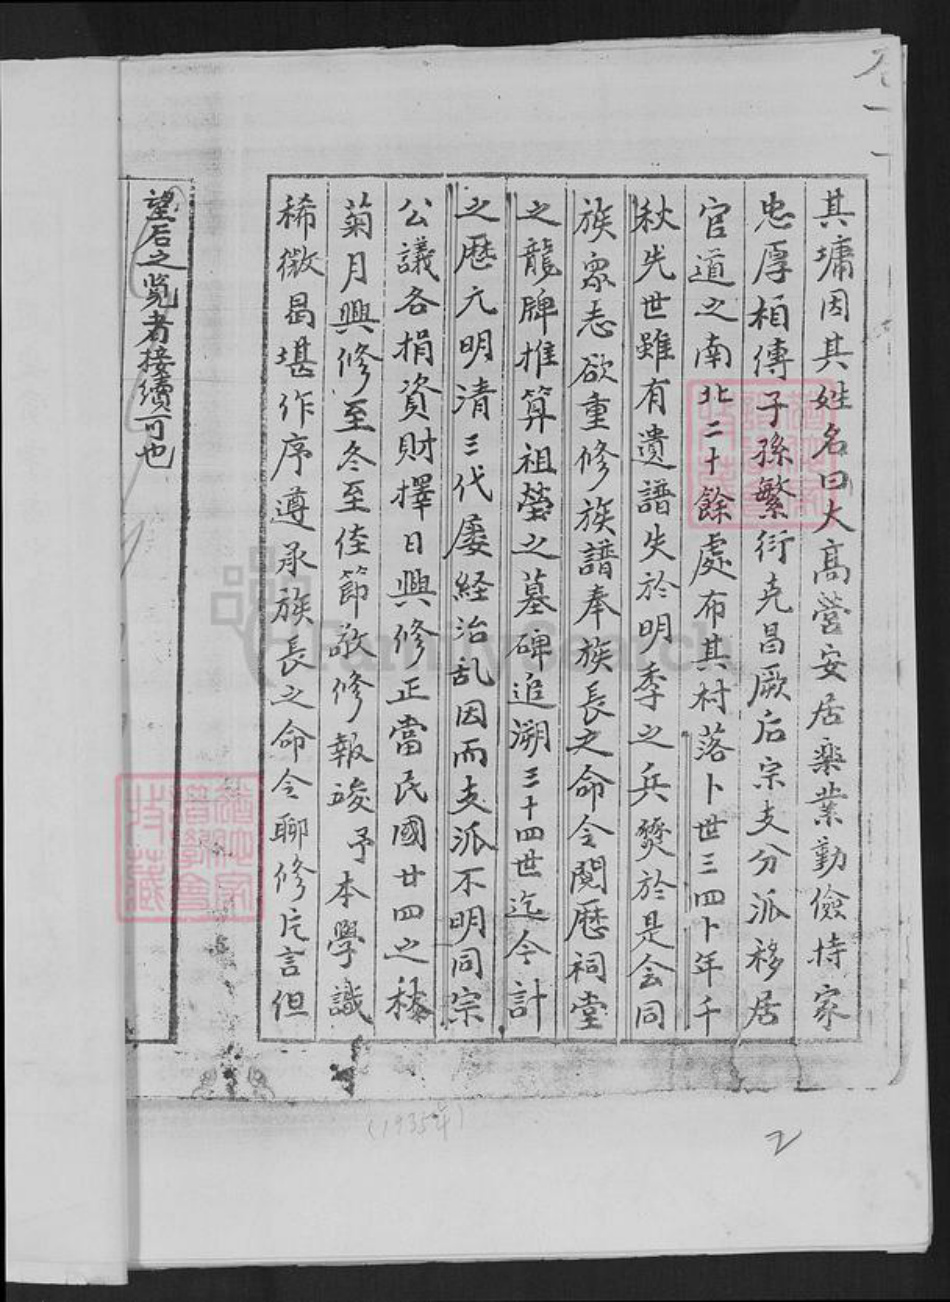 其墉因其姓名曰大髙營安居楽業勤儉持家
忠厚相傳子孫繁衍克昌厥后宗支分派移居
官道之南北二十餘處布其村落卜世三四卜年千
秋先世雖有遺譜失於明季之兵燹於是会同
族眾志欲重修族譜奉族長之命令閱歷祠堂
之龍牌推算祖塋之墓碑追溯三十四世迄今計
之歷元明清三代屡経治乱因而支派不明同宗
公議各捐資財擇日興修正當民國廿四之秋
菊月興修至冬至佳節敬修報竣予本學識
稀微曷堪作序遵承族長之命令聊修片言但
望后之览者接續可也
(1935年)
2
FamilySearch